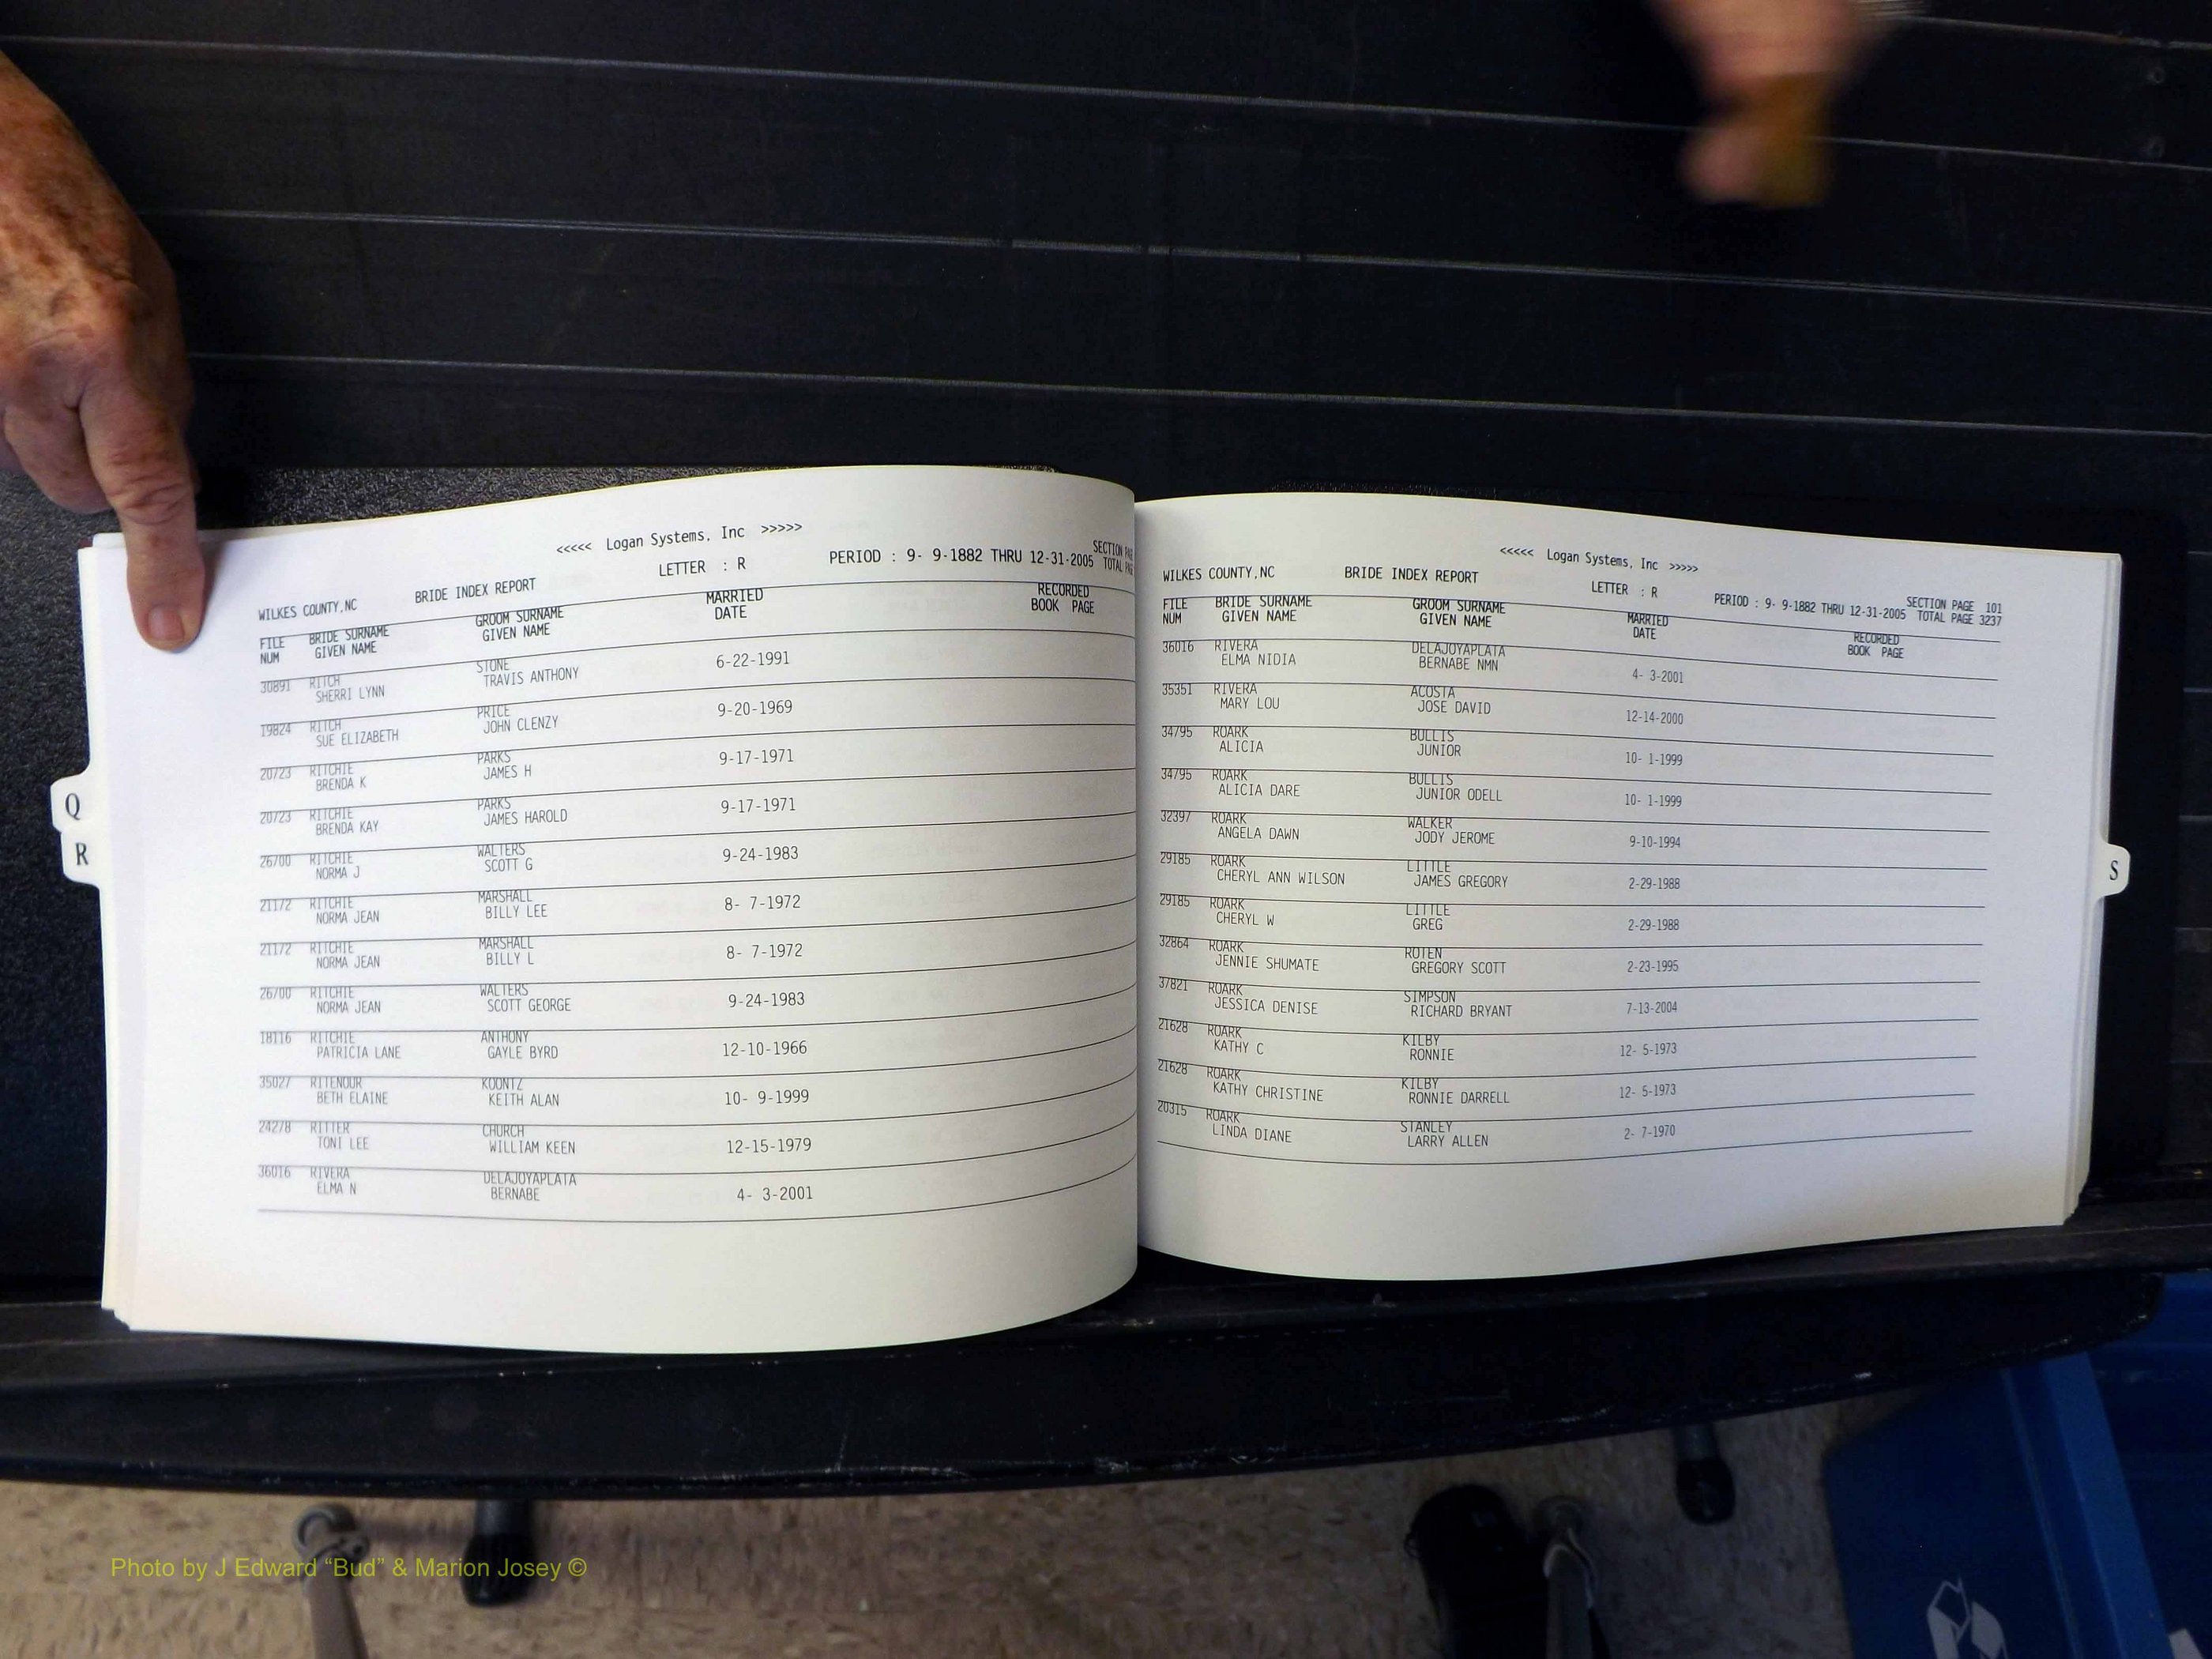 <<<<< Logan Systems, Inc >>>>>
WILKES COUNTY,NC BRIDE INDEX REPORT LETTER : R PERIOD : 9- 9-1882 THRU 12-31-2005 SECTION
TOTAL
FILE BRIDE SURNAME GROOM SURNAME MARRIED RECORDED
NUM GIVEN NAME GIVEN NAME DATE BOOK PAGE
30891 RITCH STONE 6-22-1991
SHERRI LYNN TRAVIS ANTHONY
19824 RITCH PRICE 9-20-1969
SUE ELIZABETH JOHN CLENZY
20723 RITCHIE PARKS 9-17-1971
BRENDA K JAMES H
20723 RITCHIE PARKS 9-17-1971
BRENDA KAY JAMES HAROLD
26700 RITCHIE WALTERS 9-24-1983
NORMA J SCOTT G
21172 RITCHIE MARSHALL 8- 7-1972
NORMA JEAN BILLY LEE
21172 RITCHIE MARSHALL 8- 7-1972
NORMA JEAN BILLY L
26700 RITCHIE WALTERS 9-24-1983
NORMA JEAN SCOTT GEORGE
18116 RITCHIE ANTHONY 12-10-1966
PATRICIA LANE GAYLE BYRD
35027 RITENOUR KOONTZ 10- 9-1999
BETH ELAINE KEITH ALAN
24278 RITTER CHURCH 12-15-1979
TONI LEE WILLIAM KEEN
36016 RIVERA DELAJOYAPLATA 4- 3-2001
ELMA N BERNABE
Q
R
<<<<< Logan Systems, Inc >>>>>
WILKES COUNTY,NC BRIDE INDEX REPORT LETTER : R PERIOD : 9- 9-1882 THRU 12-31-2005 SECTION PAGE 101
TOTAL PAGE 3237
FILE BRIDE SURNAME GROOM SURNAME MARRIED RECORDED
NUM GIVEN NAME GIVEN NAME DATE BOOK PAGE
36016 RIVERA DELAJOYAPLATA 4- 3-2001
ELMA NIDIA BERNABE NMN
35351 RIVERA ACOSTA 12-14-2000
MARY LOU JOSE DAVID
34795 ROARK BULLIS 10- 1-1999
ALICIA JUNIOR
34795 ROARK BULLIS 10- 1-1999
ALICIA DARE JUNIOR ODELL
32397 ROARK WALKER 9-10-1994
ANGELA DAWN JODY JEROME
29185 ROARK LITTLE 2-29-1988
CHERYL ANN WILSON JAMES GREGORY
29185 ROARK LITTLE 2-29-1988
CHERYL W GREG
32864 ROARK ROTEN 2-23-1995
JENNIE SHUMATE GREGORY SCOTT
37821 ROARK SIMPSON 7-13-2004
JESSICA DENISE RICHARD BRYANT
21628 ROARK KILBY 12- 5-1973
KATHY C RONNIE
21628 ROARK KILBY 12- 5-1973
KATHY CHRISTINE RONNIE DARRELL
20315 ROARK STANLEY 2- 7-1970
LINDA DIANE LARRY ALLEN
S
Photo by J Edward “Bud” & Marion Josey ©